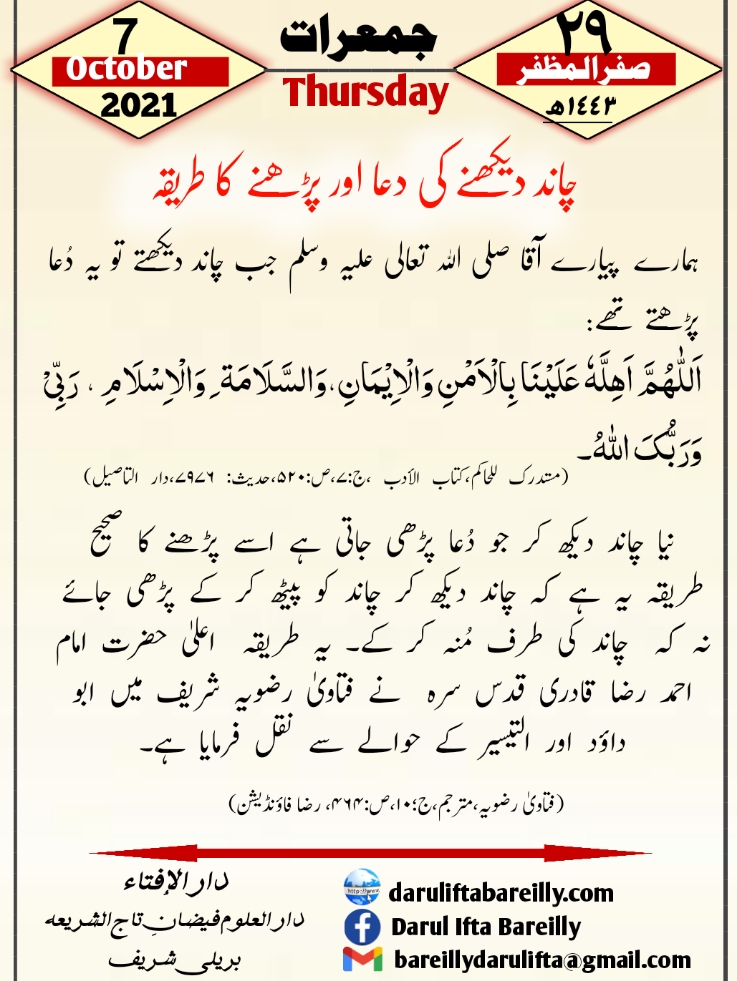 7
October
2021
جمعرات
Thursday
۲۹
صفر المظفر
۱۴۴۳ھ
چاند دیکھنے کی دعا اور پڑھنے کا طریقہ
ہمارے پیارے آقا صلی اللہ تعالی علیہ وسلم جب چاند دیکھتے تو یہ دُعا
پڑھتے تھے:
اَللّٰهُمَّ اَهِلَّهٗ عَلَيْنَا بِالْاَمْنِ وَالْاِيْمَانِ، وَالسَّلَامَةِ وَالْاِسْلَامِ ، رَبِّيْ
وَرَبُّکَ اللهُ۔
(مستدرک للحاکم،کتاب الأدب ،ج:۷،ص:۵۲۰،حدیث: ۷۹۷۶،دار التاصیل)
نیا چاند دیکھ کر جو دُعا پڑھی جاتی ہے اسے پڑھنے کا صحیح
طریقہ یہ ہے کہ چاند دیکھ کر چاند کو پیٹھ کر کے پڑھی جائے
نہ کہ چاند کی طرف مُنہ کر کے۔ یہ طریقہ اعلیٰ حضرت امام
احمد رضا قادری قدس سرہ نے فتاویٰ رضویہ شریف میں ابو
داؤد اور التیسیر کے حوالے سے نقل فرمایا ہے۔
(فتاویٰ رضویہ،مترجم،ج:۱۰،ص:۴۶۴، رضا فاؤنڈیشن)
دار الإفتاء
دارالعلوم فیضانِ تاج الشریعہ
بریلی شریف
http://www
daruliftabareilly.com
Darul Ifta Bareilly
bareillydarulifta@gmail.com